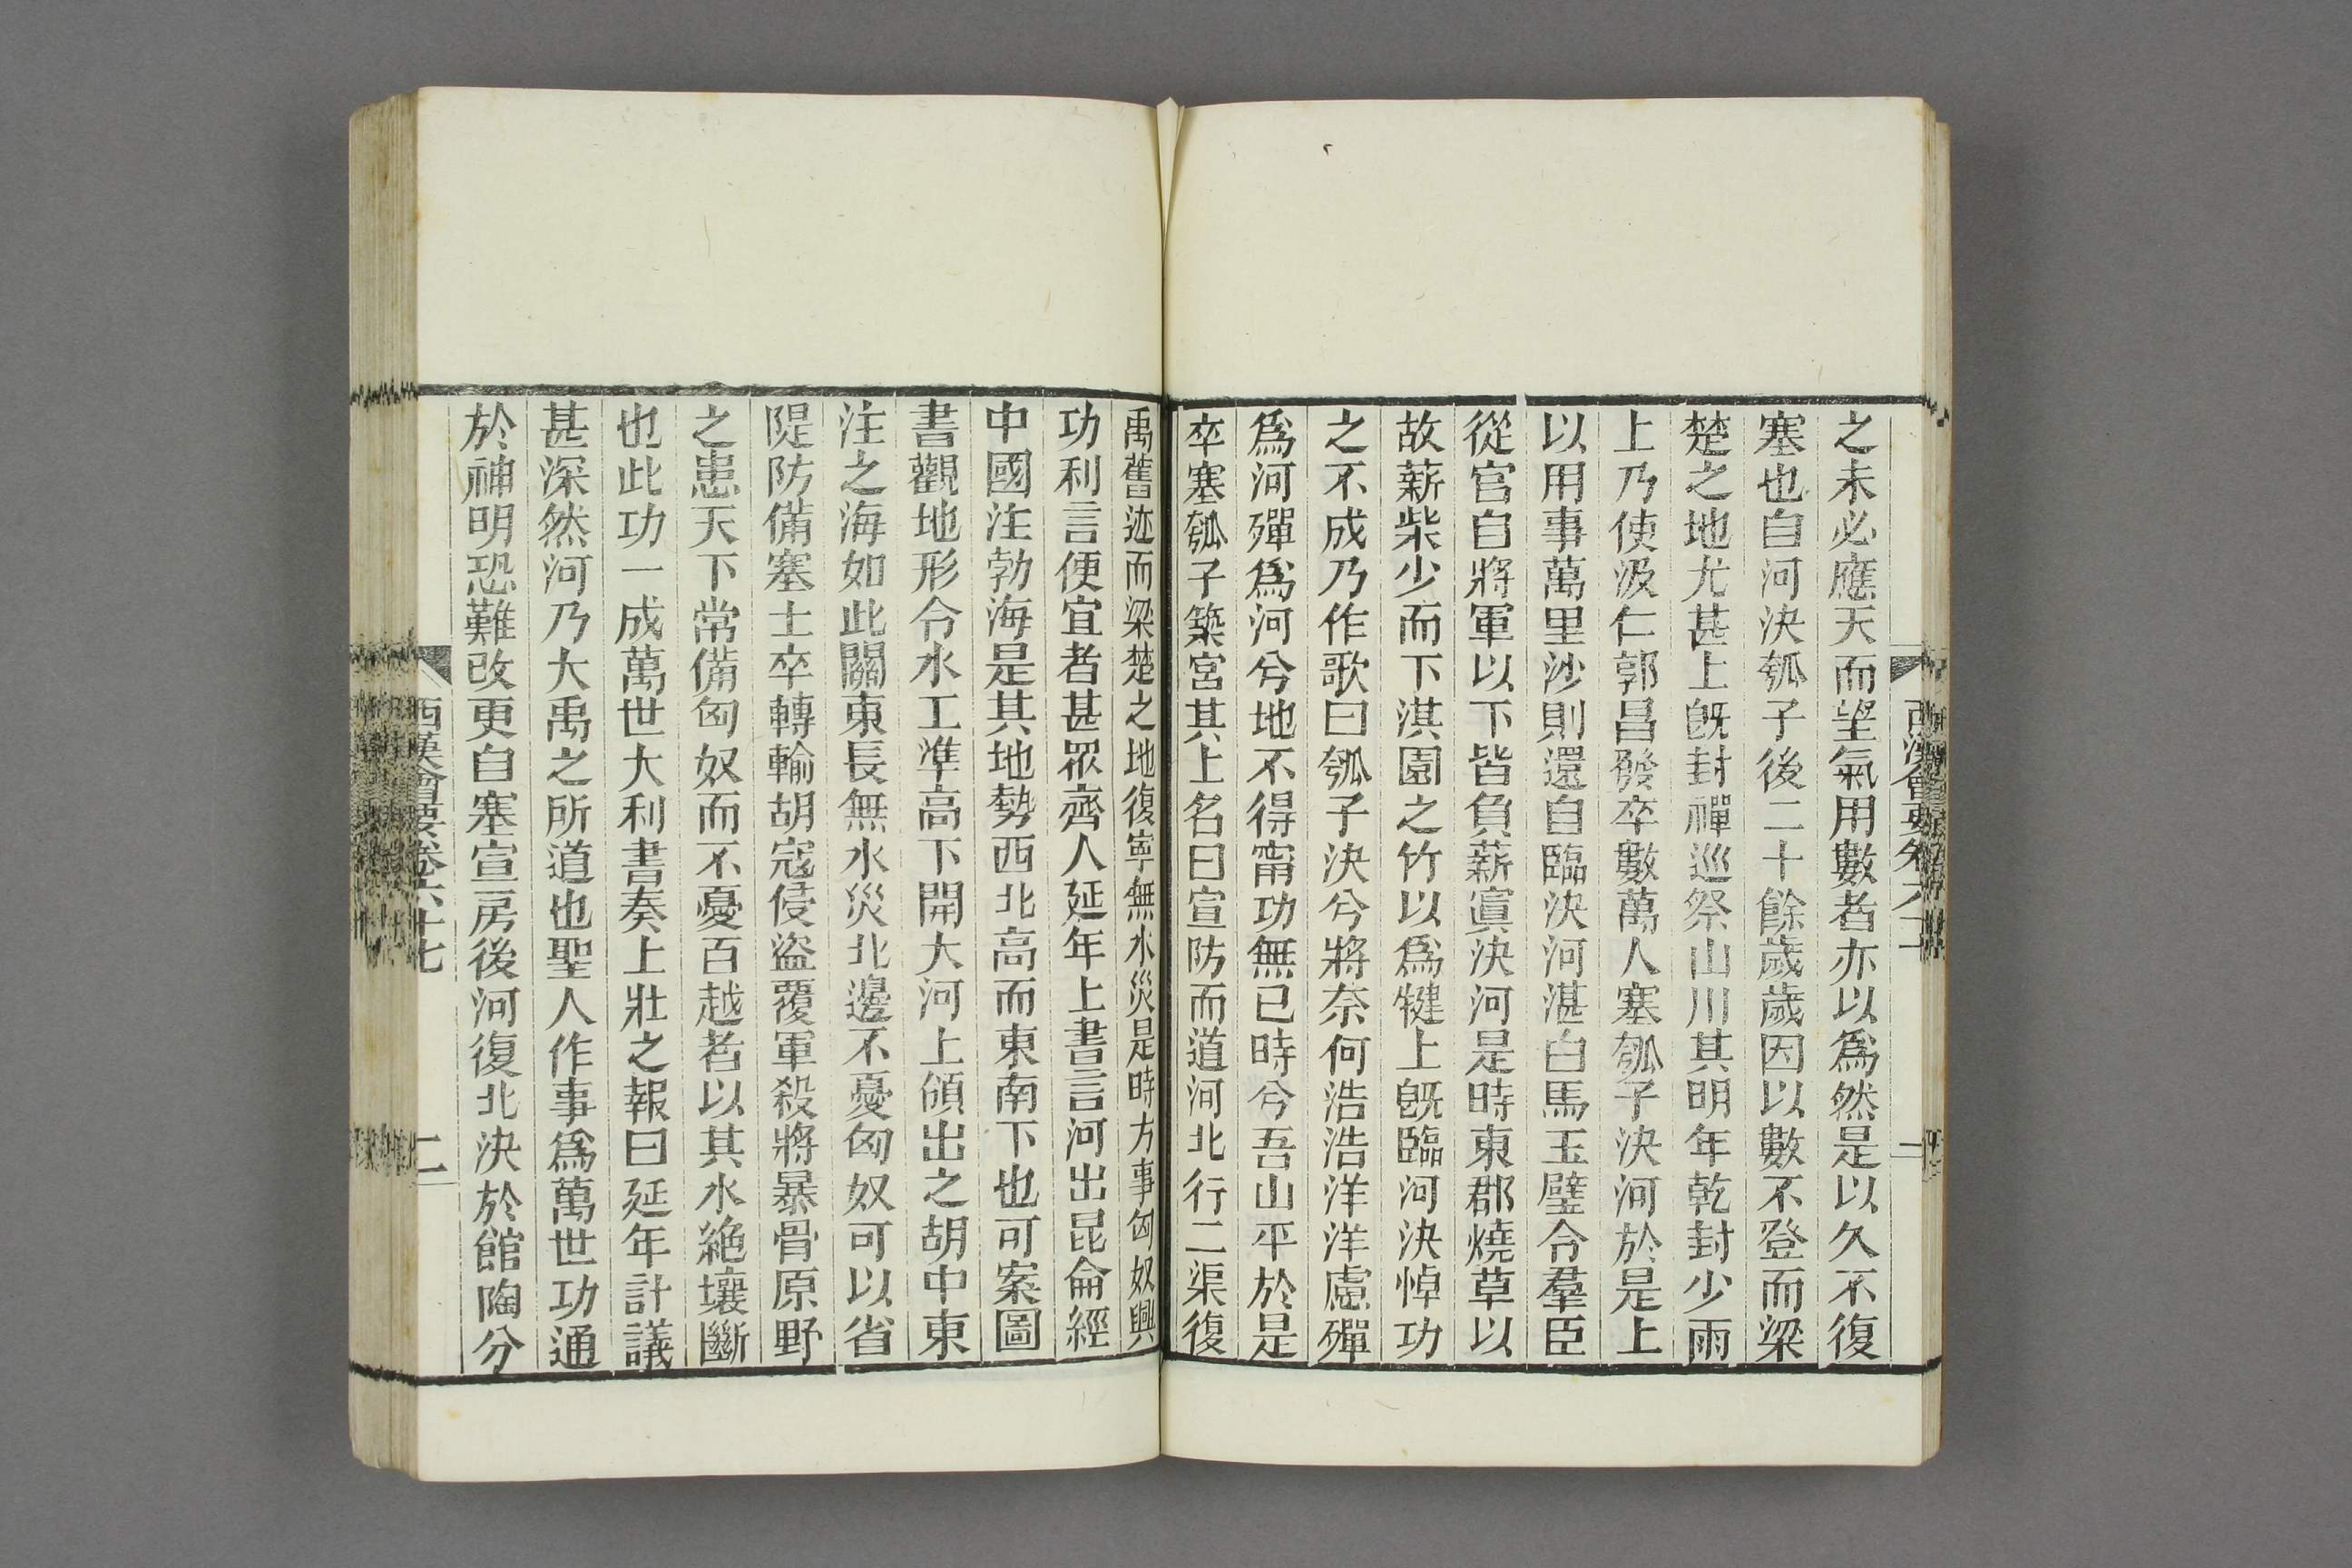 之未必應天而望氣用數者亦以爲然是以久不復
塞也自河決瓠子後二十餘歲歲因以數不登而梁
楚之地尤甚上旣封禪巡祭山川其明年乾封少雨
上乃使汲仁郭昌發卒數萬人塞瓠子決河於是上
以用事萬里沙則還自臨決河湛白馬玉璧令羣臣
從官自將軍以下皆負薪窴決河是時東郡燒草以
故薪柴少而下淇園之竹以爲揵上旣臨河決悼功
之不成乃作歌曰瓠子決兮將奈何浩浩洋洋慮殫
爲河殫爲河兮地不得甯功無已時兮吾山平於是
卒塞瓠子築宮其上名曰宣防而道河北行二渠復
禹舊迹而梁楚之地復寧無水災是時方事匈奴興
功利言便宜者甚眾齊人延年上書言河出昆侖經
中國注勃海是其地勢西北高而東南下也可案圖
書觀地形令水工準高下開大河上領出之胡中東
注之海如此關東長無水災北邊不憂匈奴可以省
隄防備塞士卒轉輸胡寇侵盜覆軍殺將暴骨原野
之患天下常備匈奴而不憂百越者以其水絶壤斷
也此功一成萬世大利書奏上壯之報曰延年計議
甚深然河乃大禹之所道也聖人作事爲萬世功通
於神明恐難改更自塞宣房後河復北決於館陶分
西漢會要卷六十七
二